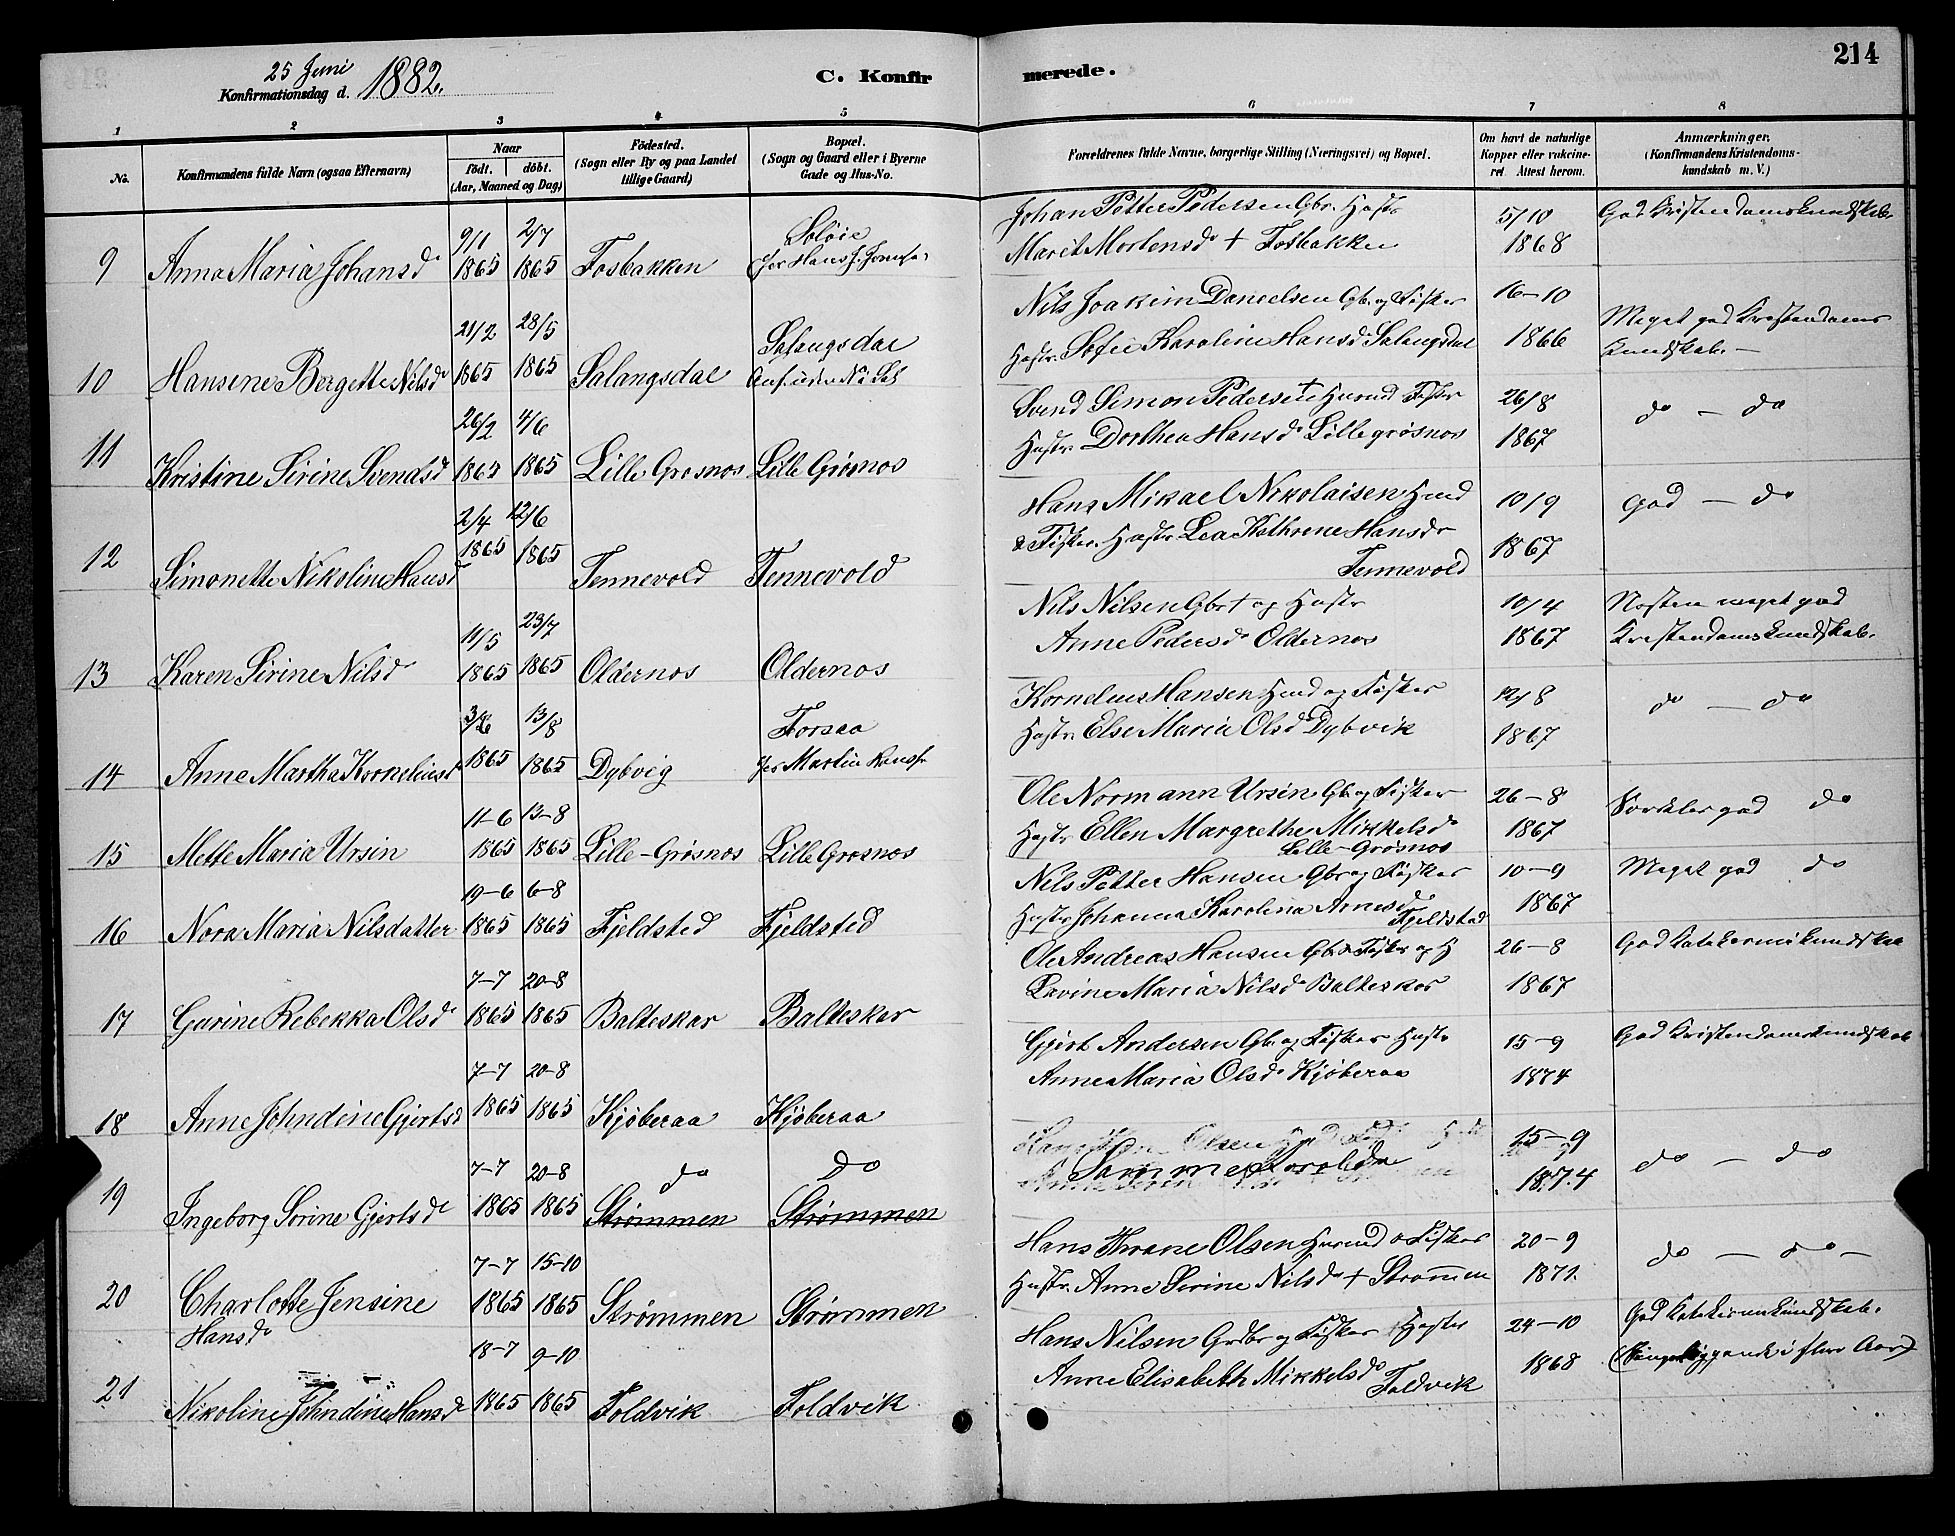 214
25 Juni
Konfirmationsdag d. 1882.
C. Konfirmerede.
1 2 3 4 5 6 7 8
No. Konfirmandens fulde Navn (ogsaa Efternavn)
Naar
födt. döbt.
(Aar, Maaned og Dag)
Födested.
(Sogn eller By og paa Landet
tillige Gaard)
Bopæl.
(Sogn og Gaard eller i Byerne
Gade og Hus-No.
Forældrenes fulde Navne, borgerlige Stilling (Næringsvei) og Bopæl.
Om havt de naturlige
Kopper eller vakcine-
ret. Attest herom.
Anmærkninger.
(Konfirmandens Kristendoms-
kundskab m. V.)
9 Anna Maria Johansd
9/1 1865
2/7 1865
Fosbakken
Soløie
Johan Petter Pedersen Gbr. Hustr
Marit Mortensd + Fosbakken
5/10
1868
God Kristendomskundskab
10 Hansine Bergette Nilsd
21/2 1865
28/5 1865
Salangsdal
Salangsdal
Nils Joakim Danielsen Gb. og Fisker
Hustr. Sofie Karoline Hansd Salangsdal
16-10
1866
Meget god Kristendoms
Kundskab. -
11 Kristine Sirine Svendsd
26/2 1865
4/6 1865
Lille Grøsnos
Lille Grøsnos
Svend Simon Pedersen + Husmd Fisker
Hustr. Dorthea Hansd Lillegrøsnos
26/8
1867
do - do
12 Simonette Nikoline Hansd
2/4 1865
12/6 1865
Tennevold
Tennevold
Hans Mikael Nikolaisen Hmd
& Fisker. Hustr Lea Kathrene Hansdr
Tennevold
10/9
1867
god - do
13 Karen Sirine Nilsd
11/5 1865
23/7 1865
Oldernos
Oldernos
Nils Nilsen Gbr + og Hustr
Anne Pedersd Oldernos
10/4
1867
Næsten meget god
Kristendomskundskab.
14 Anne Martha Korneliusd
3/6 1865
13/8 1865
Dybvig
Forsaa
hos Martin Hansen
Kornelius Hansen Hmd og Fisker
Hustr. Else Maria Olsd Dybvik
12/8
1867
do - do
15 Mette Maria Ursin
11-6 1865
13-8 1865
Lille-Grøsnos
Lille Grøsnos
Ole Normann Ursin Gb. og Fisker
Hustr Ellen Margrethe Mikkelsd
Lille-Grøsnos
26-8
1867
god do
16 Nora Maria Nilsdatter
19-6 1865
6-8 1865
Fjeldsted
Fjeldsted
Nils Petter Hansen Gbr og Fisker
Hustr Johanna Karolina Arnesd
Fjeldstad
10-9
1867
Meget god do
17 Gurine Rebekka Olsd
7-7 1865
20-8 1865
Balteskar
Balteskar
Ole Andreas Hansen Gbr & Fisker og H
Lavine Maria Nilsd Balteskar
26-8
1867
God
18 Anne Johndine Gjertsd
7-7 1865
20-8 1865
Kjøberaa
Kjøberaa
Gjert Andersen Gb. og Fisker Hustr
Anne Maria Olsd Kjøberaa
15-9
1874
God Kristendomskundskab
19 Ingeborg Sorine Gjertsd
7-7 1865
20-8 1865
do
Strømmen
do
Strømmen
Samme Forældre
15-9
1874
do - do
20 Charlotte Jensine
Hansd
7-7 1865
15-10 1865
Strømmen
Strømmen
Hans Thrane Olsen Husmd & Fisker
Hustr. Anne Serine Nilsd + Strømmen
20-9
1871.
do - do -
21 Nikoline Johndine Hansd
18-7 1865
9-10 1865
Foldvik
Foldvik
Hans Nilsen Grdbr og Fisker Hustr
Anne Elisabeth Mikkelsd Foldvik
24-10
1868
God